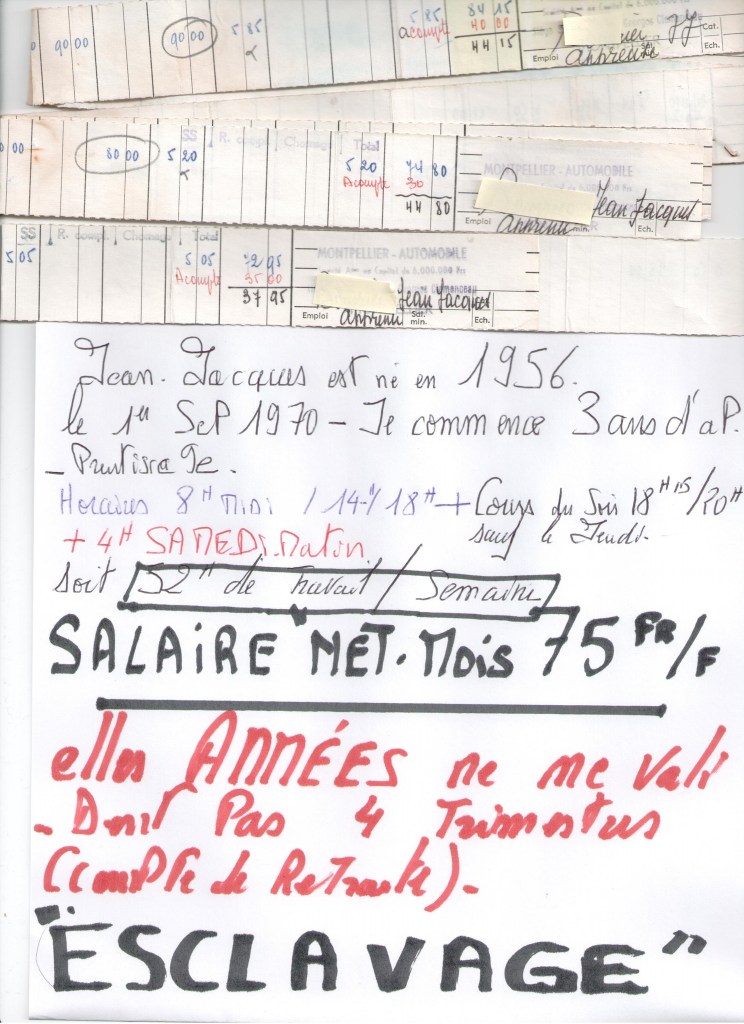 90 00 90 00 5 85 5 85 84 15
acompte 40 00
44 15
Emploi apprenti Sal. Cat.
Ech.
SS R. comp. Chomage Total
00 80 00 5 20 5 20 74 80
Acompte 30
44 80
MONTPELLIER - AUTOMOBILE
Jean Jacques
Emploi apprenti min. Ech.
SS R. compl. Chomage Total
5 05 5 05 72 95
Acompte 35 00
37 95
MONTPELLIER - AUTOMOBILE
au Capital de 5.000.000 Frs
Jean Jacques
Emploi apprenti Sal. min. Ech.
Jean. Jacques est né en 1956.
le 1er SeP 1970 - Je commence 3 ans d'aP.
- Prentissage.
Horaires 8H Midi / 14H/18H + Cours du Soir 18H15/20H
sauf le Jeudi.
+ 4H SAMEDi Matin
Soit 52H de Travail / Semaine
SALAiRE NET. Mois 75 FR/F
elles ANNÉES ne me Vali
- Dent Pas 4 Trimestres
(compte de Retraite).
"ESCLAVAGE"